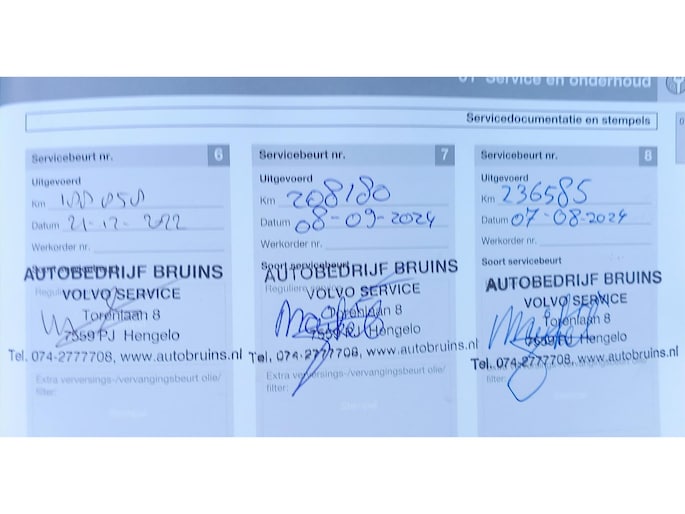 01 Service en onderhoud
Servicedocumentatie en stempels
Servicebeurt nr. 6
Uitgevoerd
Km
Datum 21-12-2022
Werkorder nr.
AUTOBEDRIJF BRUINS
VOLVO SERVICE
Torenlaan 8
7559 PJ Hengelo
Tel. 074-2777708, www.autobruins.nl
Extra verversings-/vervangingsbeurt olie/
filter:
Servicebeurt nr. 7
Uitgevoerd
Km 208180
Datum 08-09-2024
Werkorder nr.
Soort servicebeurt
AUTOBEDRIJF BRUINS
Reguliere
VOLVO SERVICE
Torenlaan 8
7559 PJ Hengelo
Tel. 074-2777708, www.autobruins.nl
Extra verversings-/vervangingsbeurt olie/
filter:
Stempel
Servicebeurt nr. 8
Uitgevoerd
Km 236585
Datum 07-08-2024
Werkorder nr.
Soort servicebeurt
AUTOBEDRIJF BRUINS
VOLVO SERVICE
Torenlaan 8
7559 PJ Hengelo
Tel. 074-2777708, www.autobruins.nl
filter: